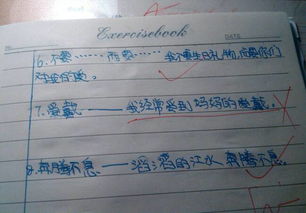 Exercisebook
DATE
6.不要……而要……我不要生日礼物,而要你们
7.爱戴——我经常受到妈妈的爱戴。
8.奔腾不息——滔滔的江水奔腾不息。